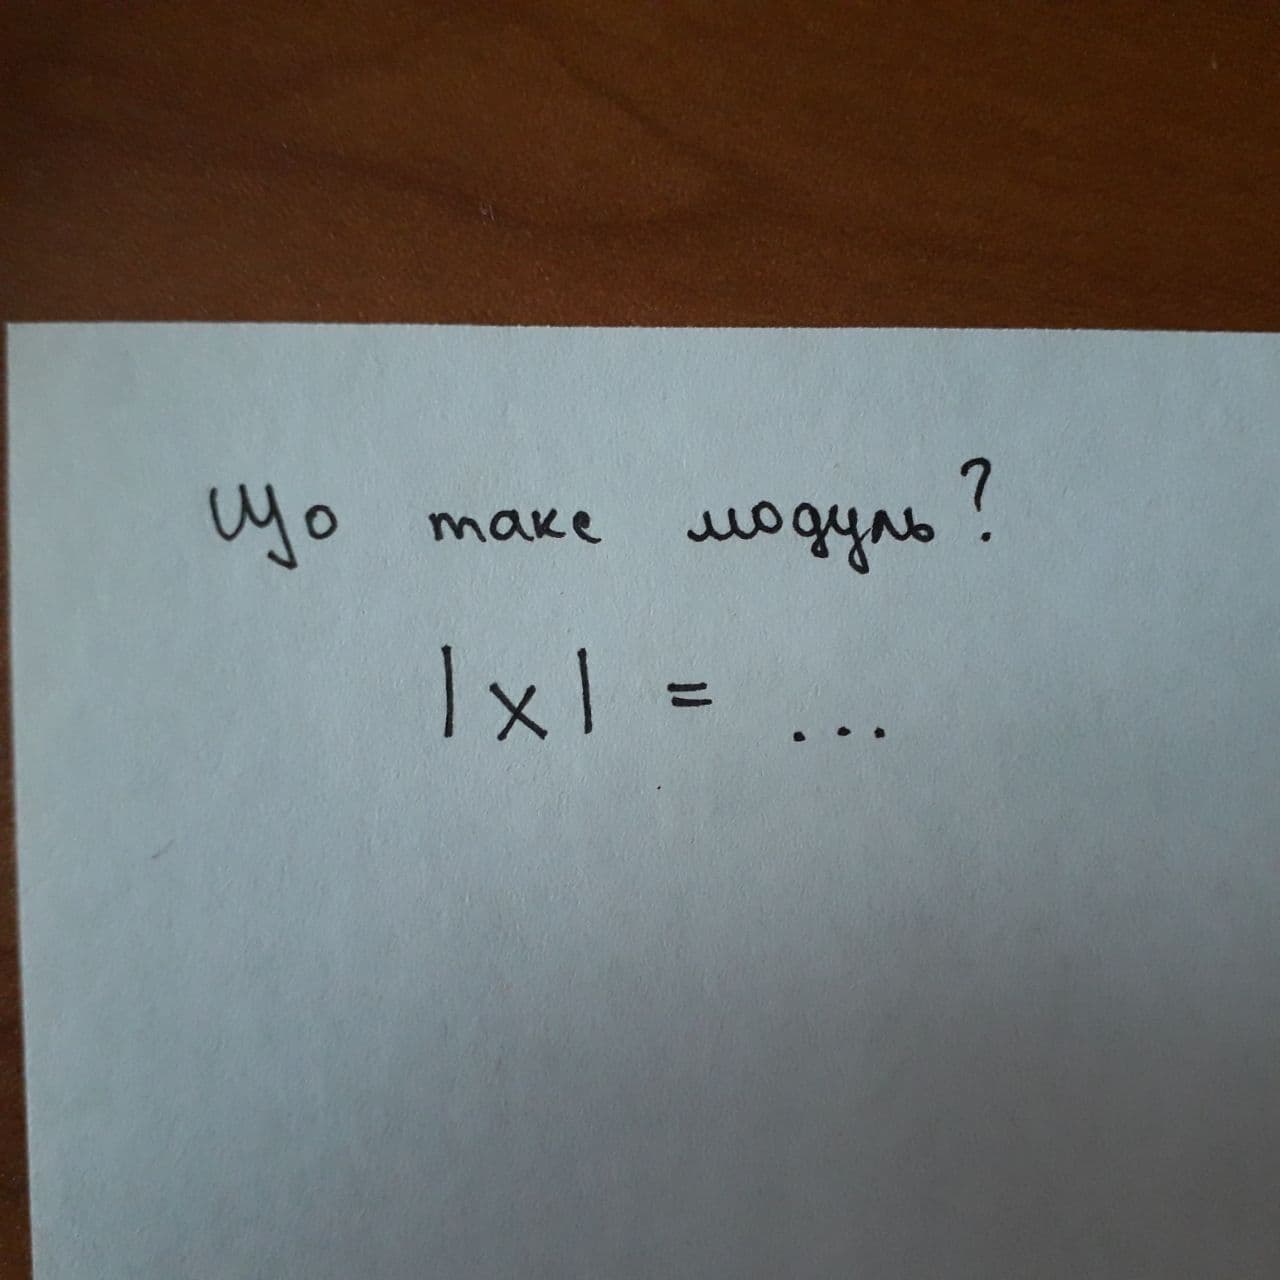 Що таке модуль?
|x| = ...